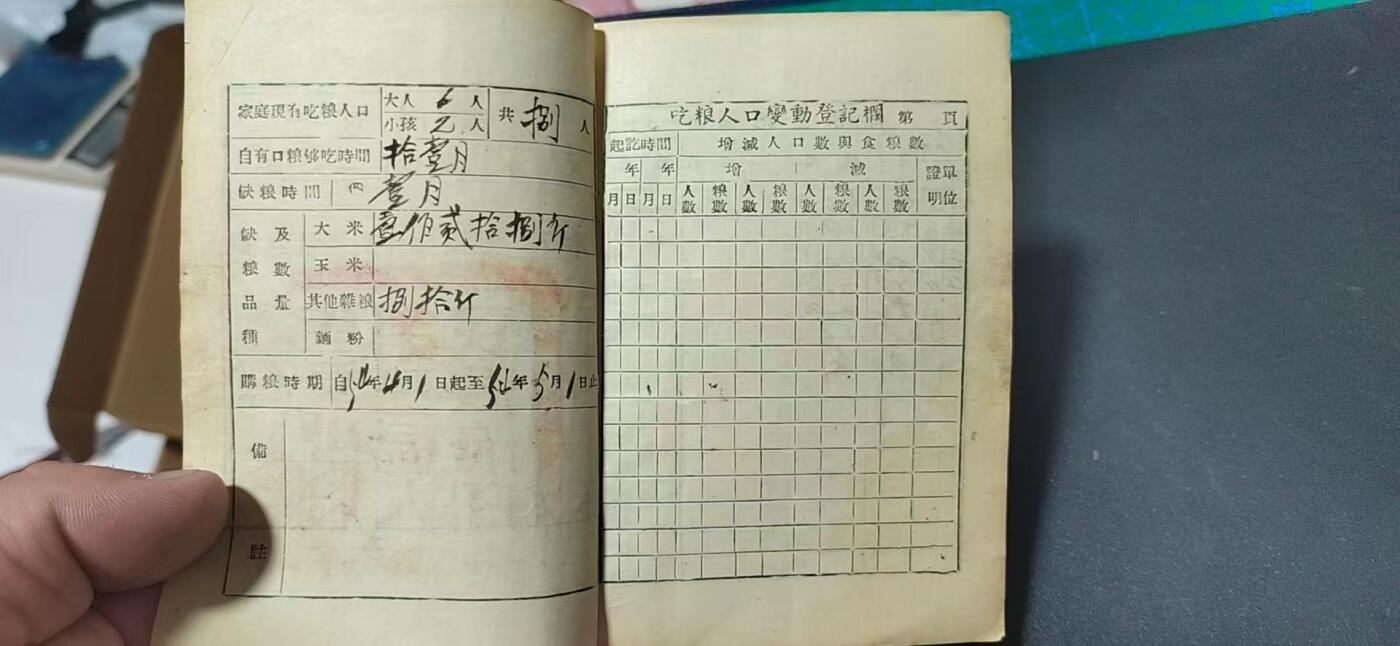 家庭現有吃粮人口 大人 6 人 共 捌 人
小孩 2 人
自有口粮够吃時間 拾壹月
缺粮時間 壹月
缺及 大米 壹佰贰拾捌斤
粮數 玉米
品量 其他雜粮 捌拾斤
種 麵粉
購粮時期 自54年4月1日起至54年5月1日止
備
註
吃粮人口變動登記欄 第 頁
起訖時間 增減人口數與食粮數
年 年 增 減 證單
月日月日 人數 粮數 人數 粮數 人數 粮數 人數 粮數 明位